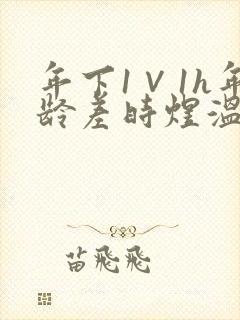 年下1V1h年
龄差时煜温
苗飛飛